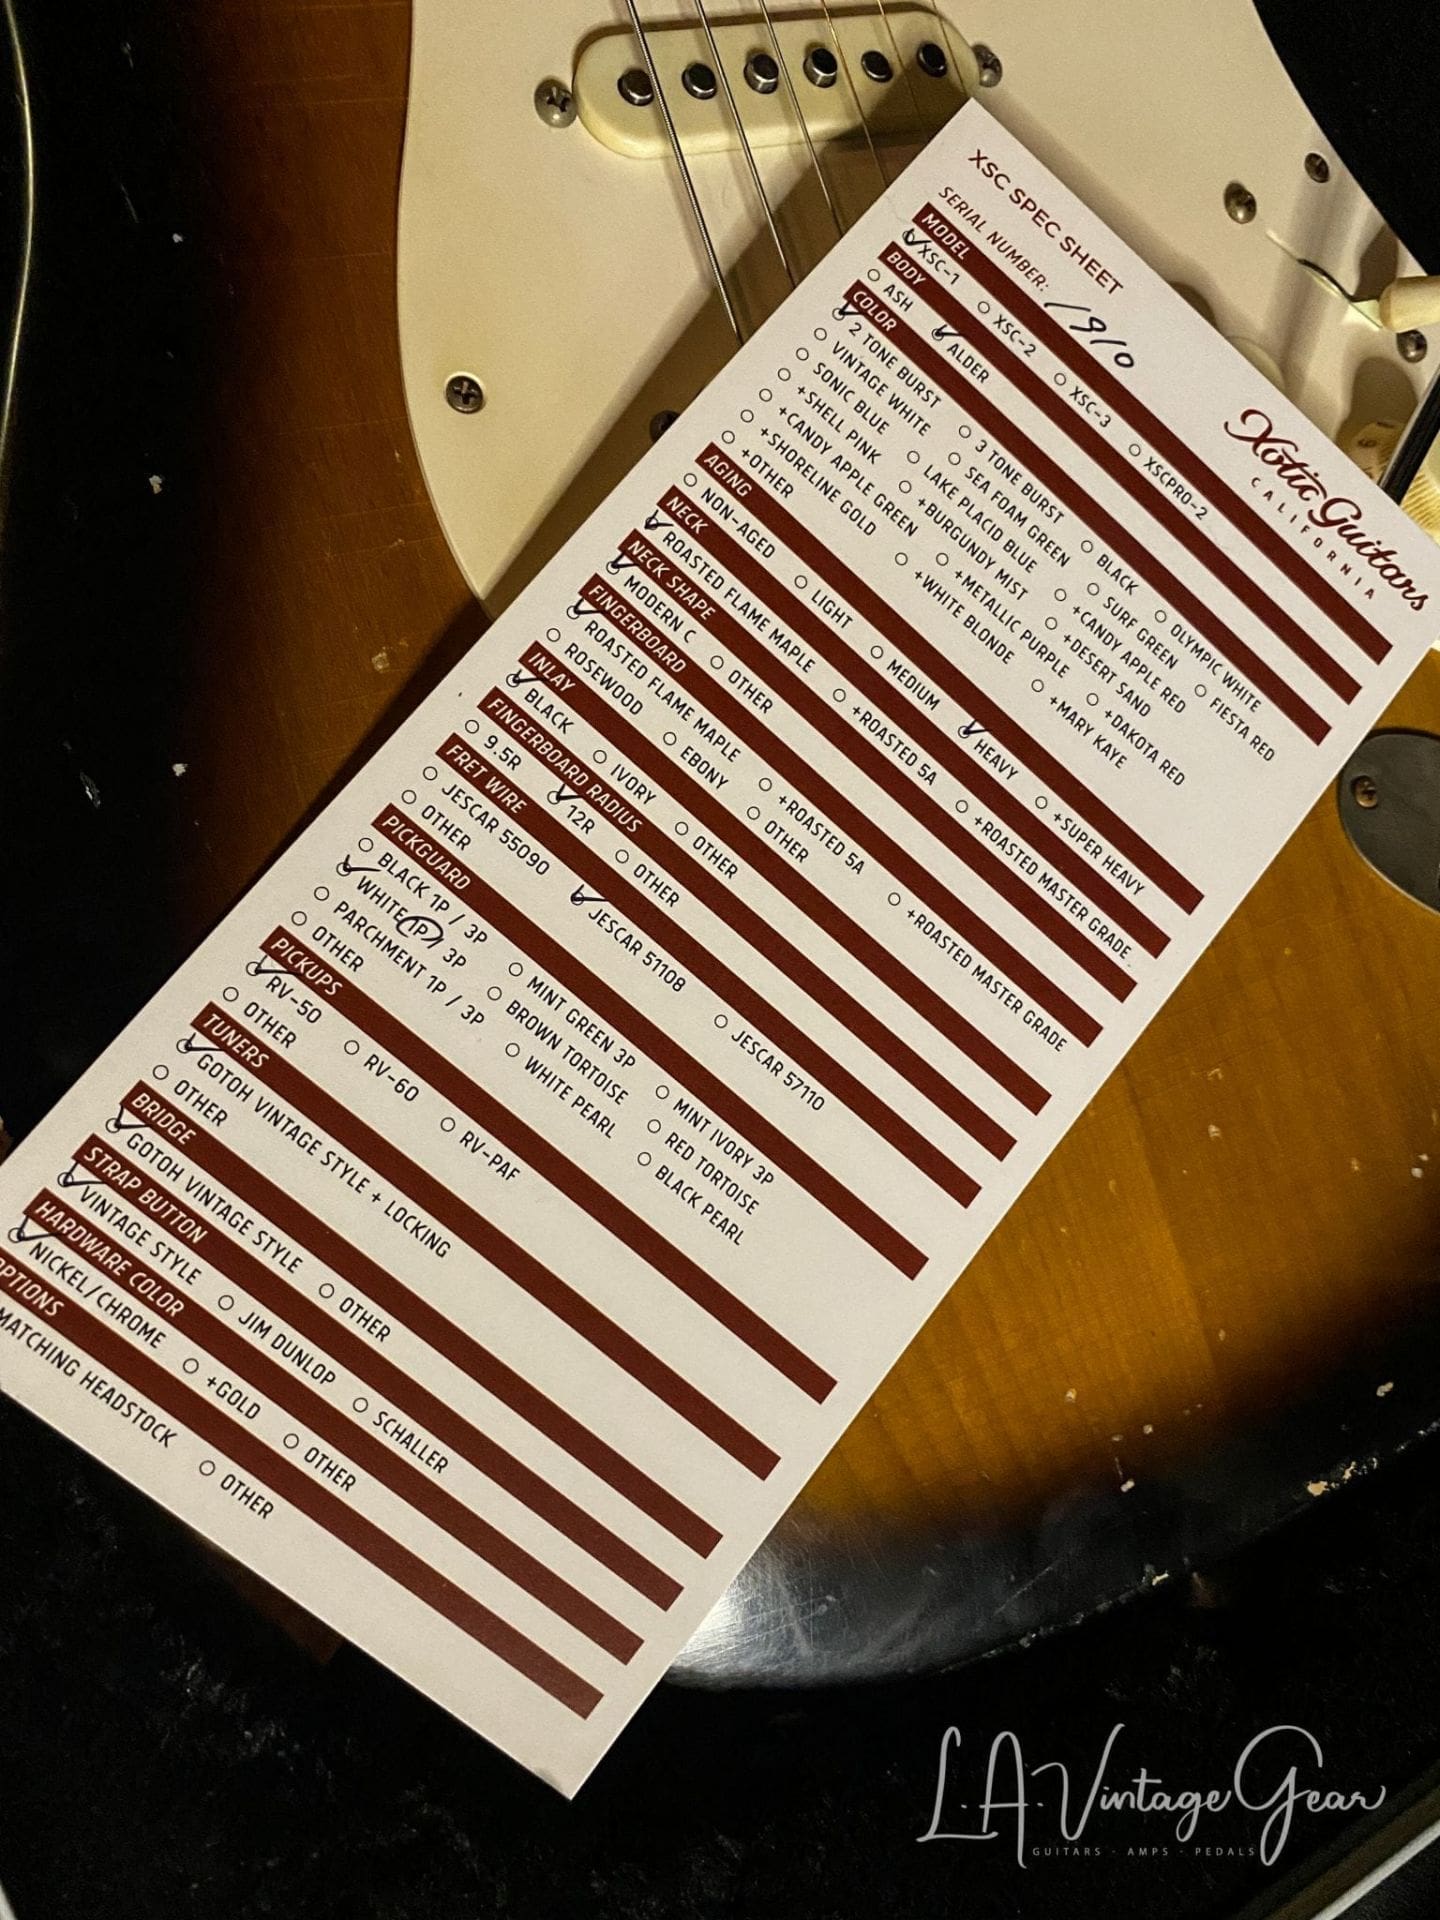 XSC SPEC SHEET
SERIAL NUMBER: 1910
Xotic Guitars
CALIFORNIA
MODEL
XSC-1 XSC-2 XSC-3 XSCPRO-2
BODY
ASH ALDER
COLOR
2 TONE BURST 3 TONE BURST BLACK OLYMPIC WHITE
VINTAGE WHITE SEA FOAM GREEN SURF GREEN FIESTA RED
SONIC BLUE LAKE PLACID BLUE +CANDY APPLE RED
+SHELL PINK +BURGUNDY MIST +DESERT SAND +DAKOTA RED
+CANDY APPLE GREEN +METALLIC PURPLE +MARY KAYE
+SHORELINE GOLD +WHITE BLONDE
+OTHER
AGING
NON-AGED LIGHT MEDIUM HEAVY +SUPER HEAVY
NECK
ROASTED FLAME MAPLE +ROASTED 5A +ROASTED MASTER GRADE
NECK SHAPE
MODERN C OTHER
FINGERBOARD
ROASTED FLAME MAPLE +ROASTED 5A +ROASTED MASTER GRADE
ROSEWOOD EBONY OTHER
INLAY
BLACK IVORY OTHER
FINGERBOARD RADIUS
9.5R 12R OTHER
FRET WIRE
JESCAR 55090 JESCAR 51108 JESCAR 57110
OTHER
PICKGUARD
BLACK 1P / 3P MINT GREEN 3P MINT IVORY 3P
WHITE 1P / 3P BROWN TORTOISE RED TORTOISE
PARCHMENT 1P / 3P WHITE PEARL BLACK PEARL
OTHER
PICKUPS
RV-50 RV-60 RV-PAF
OTHER
TUNERS
GOTOH VINTAGE STYLE + LOCKING
OTHER
BRIDGE
GOTOH VINTAGE STYLE OTHER
STRAP BUTTON
VINTAGE STYLE JIM DUNLOP SCHALLER
HARDWARE COLOR
NICKEL/CHROME +GOLD OTHER
OPTIONS
MATCHING HEADSTOCK OTHER
L.A. Vintage Gear
GUITARS · AMPS · PEDALS